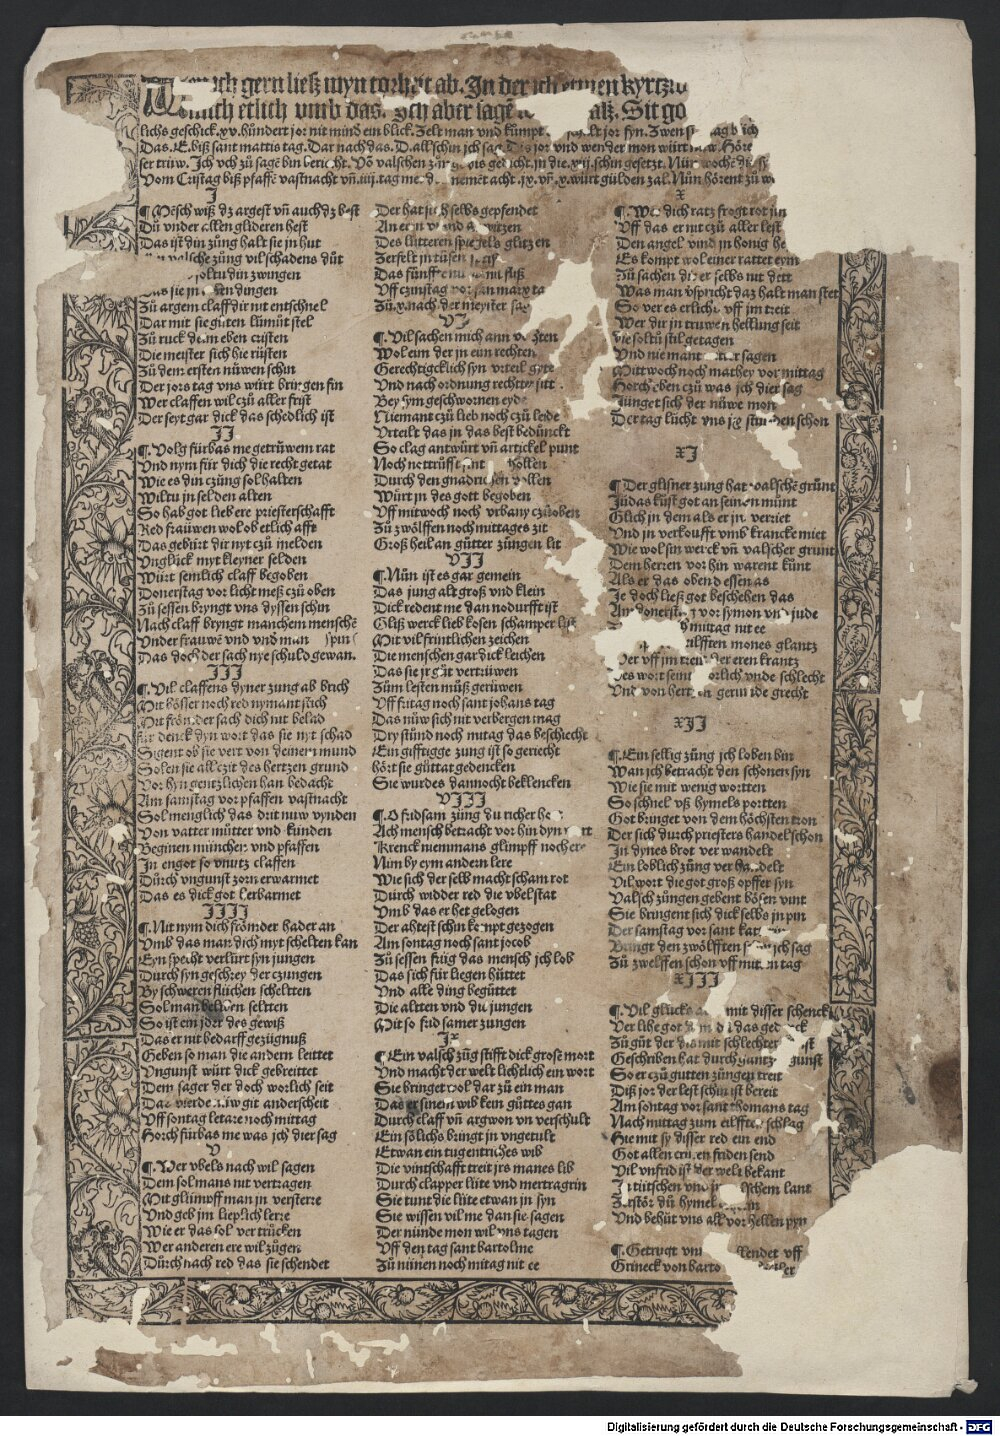 ich gern ließ myn torheit ab. In der ich
etlich vmb das. Ich aber sage Sit go
lichs geschick. xv. hundert jor nit mind ein blick. Zelt man vnd kumpt jor syn.
Das. E. biß sant mattis tag. Dar nach das. D. all schin jch sag jor vnd wen der mon würt
ser trüw. Ich vch zů sagē bin bericht. Vō valschen in die. xij. schin gesetzt. Nün wochē
Vom Cristag biß pfaffē vastnacht vn̄. iiij. tag nemēt acht. würt gulden zal. Nün hörent zů
I
¶ Mēsch wiß dz argest vn̄ auch dz best
Dü vnder allen glideren hest
Das ist din züng halt sie in hut
valsche züng vil schadens düt
soltu din zwingen
sie in dingen
Zů argem claff dir nit entschnel
Dar mit sie güten lümüt stel
Zů ruck dem eben cristen
Die meister sich hie rüsten
Zů dem ersten nüwen schin
Der jors tag vns würt bringen fin
Wer claffen wil czů aller frist
Der seyt gar dick das schedlich ist
II
¶ Volg fürbas me getrüwem rat
Vnd nym für dich die recht getat
Wie es din czüng sol halten
Wiltu in selden alten
So hab got lieb ere priesterschafft
Red frauwen wol ob etlich afft
Das gebürt dir nyt czů melden
Vnglück myt kleyner selden
Würt semlich claff begoben
Donerstag vor licht meß czů oben
Zů sessen bryngt vns dyssen schin
Nach claff bryngt manchem menschē
Vnder frauwē vnd vnd man spin
Das doch der sach nye schuld gewan.
III
¶ Vil claffens dyner zung ab brich
Mit bösser noch red nymant stich
Mit frömder sach dich nit belad
für denck dyn wort das sie nyt schad
Sigent ob sie vert von deinem mund
Solen sie all czit des hertzen grund
Vor hyn gentzlichen han bedacht
Am samstag vor pfaffen vastnacht
Sol menglich das drit nuw vynden
Von vatter mütter vnd kunden
Beginen münchen vnd pfaffen
In engot so vnutz claffen
Dürch vngunst zorn erwarmet
Das es dick got erbarmet
IIII
¶ Nit nym dich frömder hader an
Vmb das man dich myt schelten kan
Eyn specht verlürt syn jungen
Durch syn geschrey der czungen
By schweren flüchen scheltten
Sol man seltten
So ist ein jder des gewiß
Das er nit bedarff gezügnuß
Geben so man die andern leittet
Vngunst würt dick gebreittet
Dem sager der doch worlich seit
Das vierde nüw git anderscheit
Vff sontag letare noch mittag
Horch fürbas me was jch dier sag
V
¶ Wer vbels nach wil sagen
Dem sol mans nit vertragen
Mit glimpff man jn versterre
Vnd geb jm lieplich lerre
Wie er das sol ver trücken
Wer anderen ere wil zügen
Dürch nach red das sie schendet
Der hat sich selbs gepfendet
An eren vnd an witzen
Des lutteren spiegels glitzen
Zerfelt
Das fünfft
Vff czinstag vor san marx ta
Zů. x. nach der meynter sag
VI
¶ Vil sachen mich ann vechten
Wol eim der jn eun rechten
Gerechtigcklich syn vrteil gyt
Vnd nach ordnung rechtter sitt
Bey sym geschwornen eyde
Niemant czů lieb noch czů leide
Vrteilt das jn das best bedünckt
So clag antwürt vn̄ artickel punt
Noch nottrüfft hollen
Durch den gnadrichen vollen
Würt jn des gott begoben
Vff mitwoch noch vrbany czů oben
Zů zwölffen noch mittages zit
Groß heil an gütter züngen lit
VII
¶ Nün ist es gar gemein
Das jung alt groß vnd klein
Dick redent me dan nodurfft ist
Gliß werck lieb kosen schamper list
Mit vil frintlichen zeichen
Die menschen gar dick leichen
Das sie jr güt vertrüwen
Züm lesten müß gerüwen
Vff fritag noch sant johans tag
Das nüw sich nit verbergen mag
Dry stünd noch mitag das beschiecht
Ein gifftigge zung ist so geriecht
hört sie güttat gedencken
Sie wurdes dannocht beklencken
VIII
¶ O fridsam züng du richer hort
Ach mensch betracht vor hin dyn wort
Krenck niemmans glimpff noch ere
Nim by eym andern lere
Wie sich der selb macht scham rot
Dürch widder red die vbelstat
Vmb das er het gelogen
Der ahtest schin kompt gezogen
Am sontag noch sant jocob
Zů sessen früg das mensch jch lob
Das sich für liegen hüttet
Vnd alle ding begüttet
Die altten vnd die jungen
Mit so frid samer zungen
IX
¶ Ein valsch züg stifft dick grose mort
Vnd macht der welt lichtlich ein wort
Sie bringet wol dar zů ein man
Das er sinem wib kein güttes gan
Durch claff vn̄ argwon vn verschult
Ein sölichs bringt jn vngetult
Etwan ein tugentriches wib
Die vintschafft treit jrs manes lib
Durch clapper lüte vnd mertragrin
Sie tunt die lüte etwan jn syn
Sie wissen vil me dan sie sagen
Der nünde mon wil vns tagen
Vff den tag sant bartolme
Zů nünen noch mitag nit ee
X
¶ Wer dich ratz frogt rot jm
Vff das er nit zů aller lest
Den angel vnd jn honig he
Es kompt wol einer rattet eym
Zů sachen die er selbs nit dett
Was man verspricht daz halt man stet
So ver es erlich vff jm treit
Wer dir jn truwen hellung seit
die soltu stil getagen
Vnd niemant witter sagen
Mittwoch noch mathey vor mittag
Horch eben czů was jch dier sag
Junget sich der nüwe mon
Der tag lücht vns schon
XI
¶ Der glisner zung hat valschē grünt
Judas küst got an seinen münt
Glich jn dem als er jn verriet
Vnd jn verkoufft vmb krancke miet
Wie wol sin werck vn̄ valscher grunt
Dem herren vor hin warent kunt
Als er das obend essen as
Je doch ließ got beschehen das
Am donerstag vor symon vnd jude
mittag nit ee
eilfften mones glantz
Der vff jm treit der eren krantz
Des wort seint worlich vnde schlecht
Vnd von hertzen gerin ide grecht
XII
¶ Ein sellig züng jch loben bin
Wan jch betracht den schonen syn
Wie sie mit wenig wortten
So schnel vß hymels portten
Got bringet von dem höchsten tron
Der sich durch priesters handel schon
In dynes brot ver wandelt
Ein loblich züng ver handelt
Vil wort die got groß opffer syn
Valsch züngen gebent bösen vunt
Sie bringent sich dick selbs jn pin
Der samstag vor sant kat
Bringt den zwölfften jch sag
Zů zwelffen schon vff mitten tag
XIII
¶ Vil glücks mit disser schenck
Der libe got
Zů güt der dis mit schlechter
Geschriben hat durch gantz gunst
So er czů gutten züngen treit
Diß jor der lest schin ist bereit
Am sontag vor sant thomans tag
Nach mittag zum eilfften schlag
Hie mit sy disser red ein end
Got allen criſten friden send
Vil vnfrid ist der welt bekant
In tütschen vnd welschem lant
Zerstör dü hymel
Vnd behüt vns all vor hellen pyn
¶ Getrugt vn̄ vollendet vff
Grineck von barto
Digitalisierung gefördert durch die Deutsche Forschungsgemeinschaft - DFG